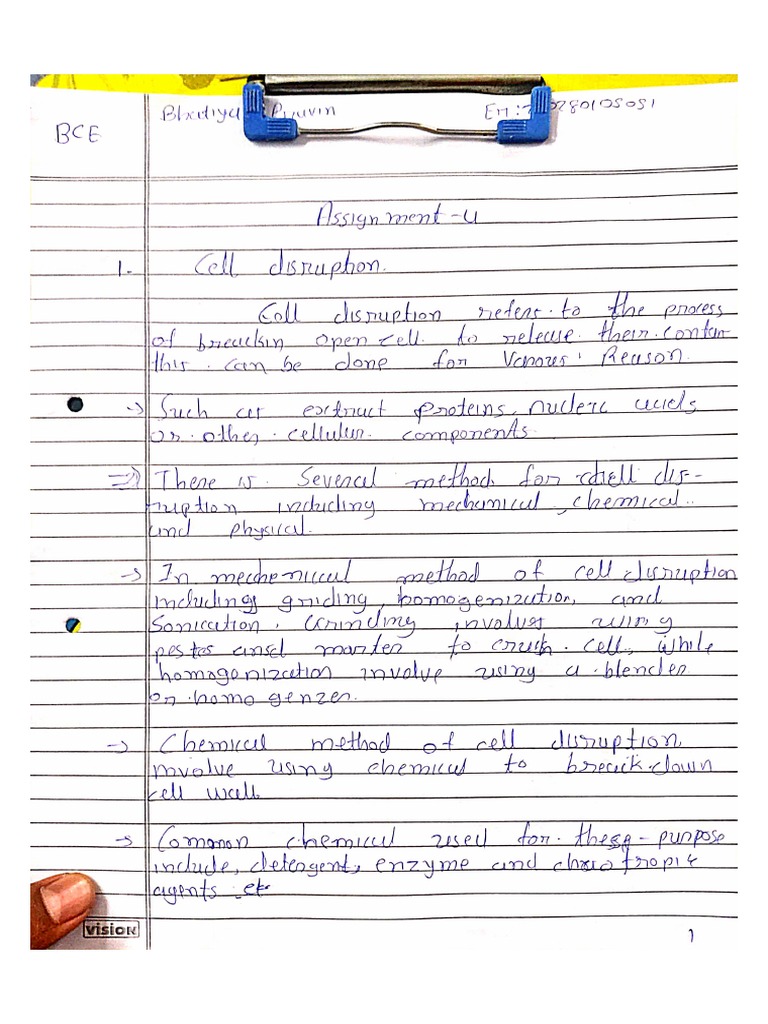 BCE
En: 280105051
Assignment-4
1- Cell disruption.
Cell disruption refers to the process
of breackin open cell to release their contan-
this can be done for Various Reason
-> Such as extract proteins, nucleic acids
or other cellular components
=> There is Several method for cell dis-
ruption including mechanical, chemical
and physical.
-> In mechenical method of cell disruption
including griding, homogenization, and
Sonication. Grinding involves using
pestes and marter to crush cell, while
homogenization involve using a blender
or homogenzer.
-> Chemical method of cell disruption
involve using chemical to breack down
cell wall.
-> Common chemical used for these purpose
include, detergent, enzyme and chaotropic
agents etc
vision
1